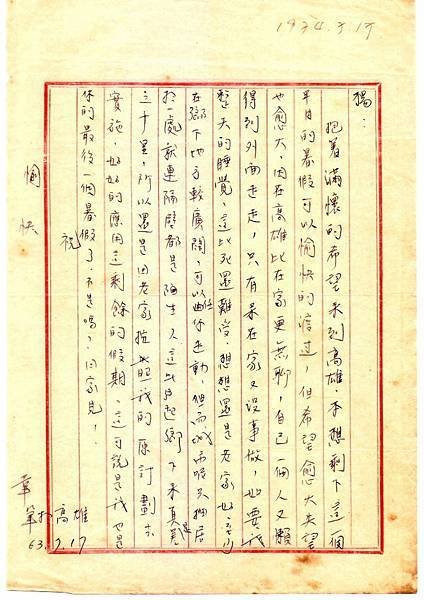 1974.7.17
獨：
抱着滿懷的希望來到高雄.本想剩下這一個
半月的暑假可以愉快的渡過,但希望愈大失望
也愈大,因在高雄比在家更無聊,自己一個人又懶
得到外面走走,只有呆在家又沒事做,也要我
整天的睡覺,這比死還難受.想想還是老家也
在鄉下地方較廣闊,可以任你走動,但而城市呢只拘居
於一處就連隔壁都是陌生人這比起鄉下來真是
三十里,所以還是回老家按照我的原訂計劃去
實施,好好的應用這剩餘的假期.這可說是我也是
你的最後一個暑假了.不是嗎?.回家見!.
祝
愉快
章
筆於高雄
63.7.17